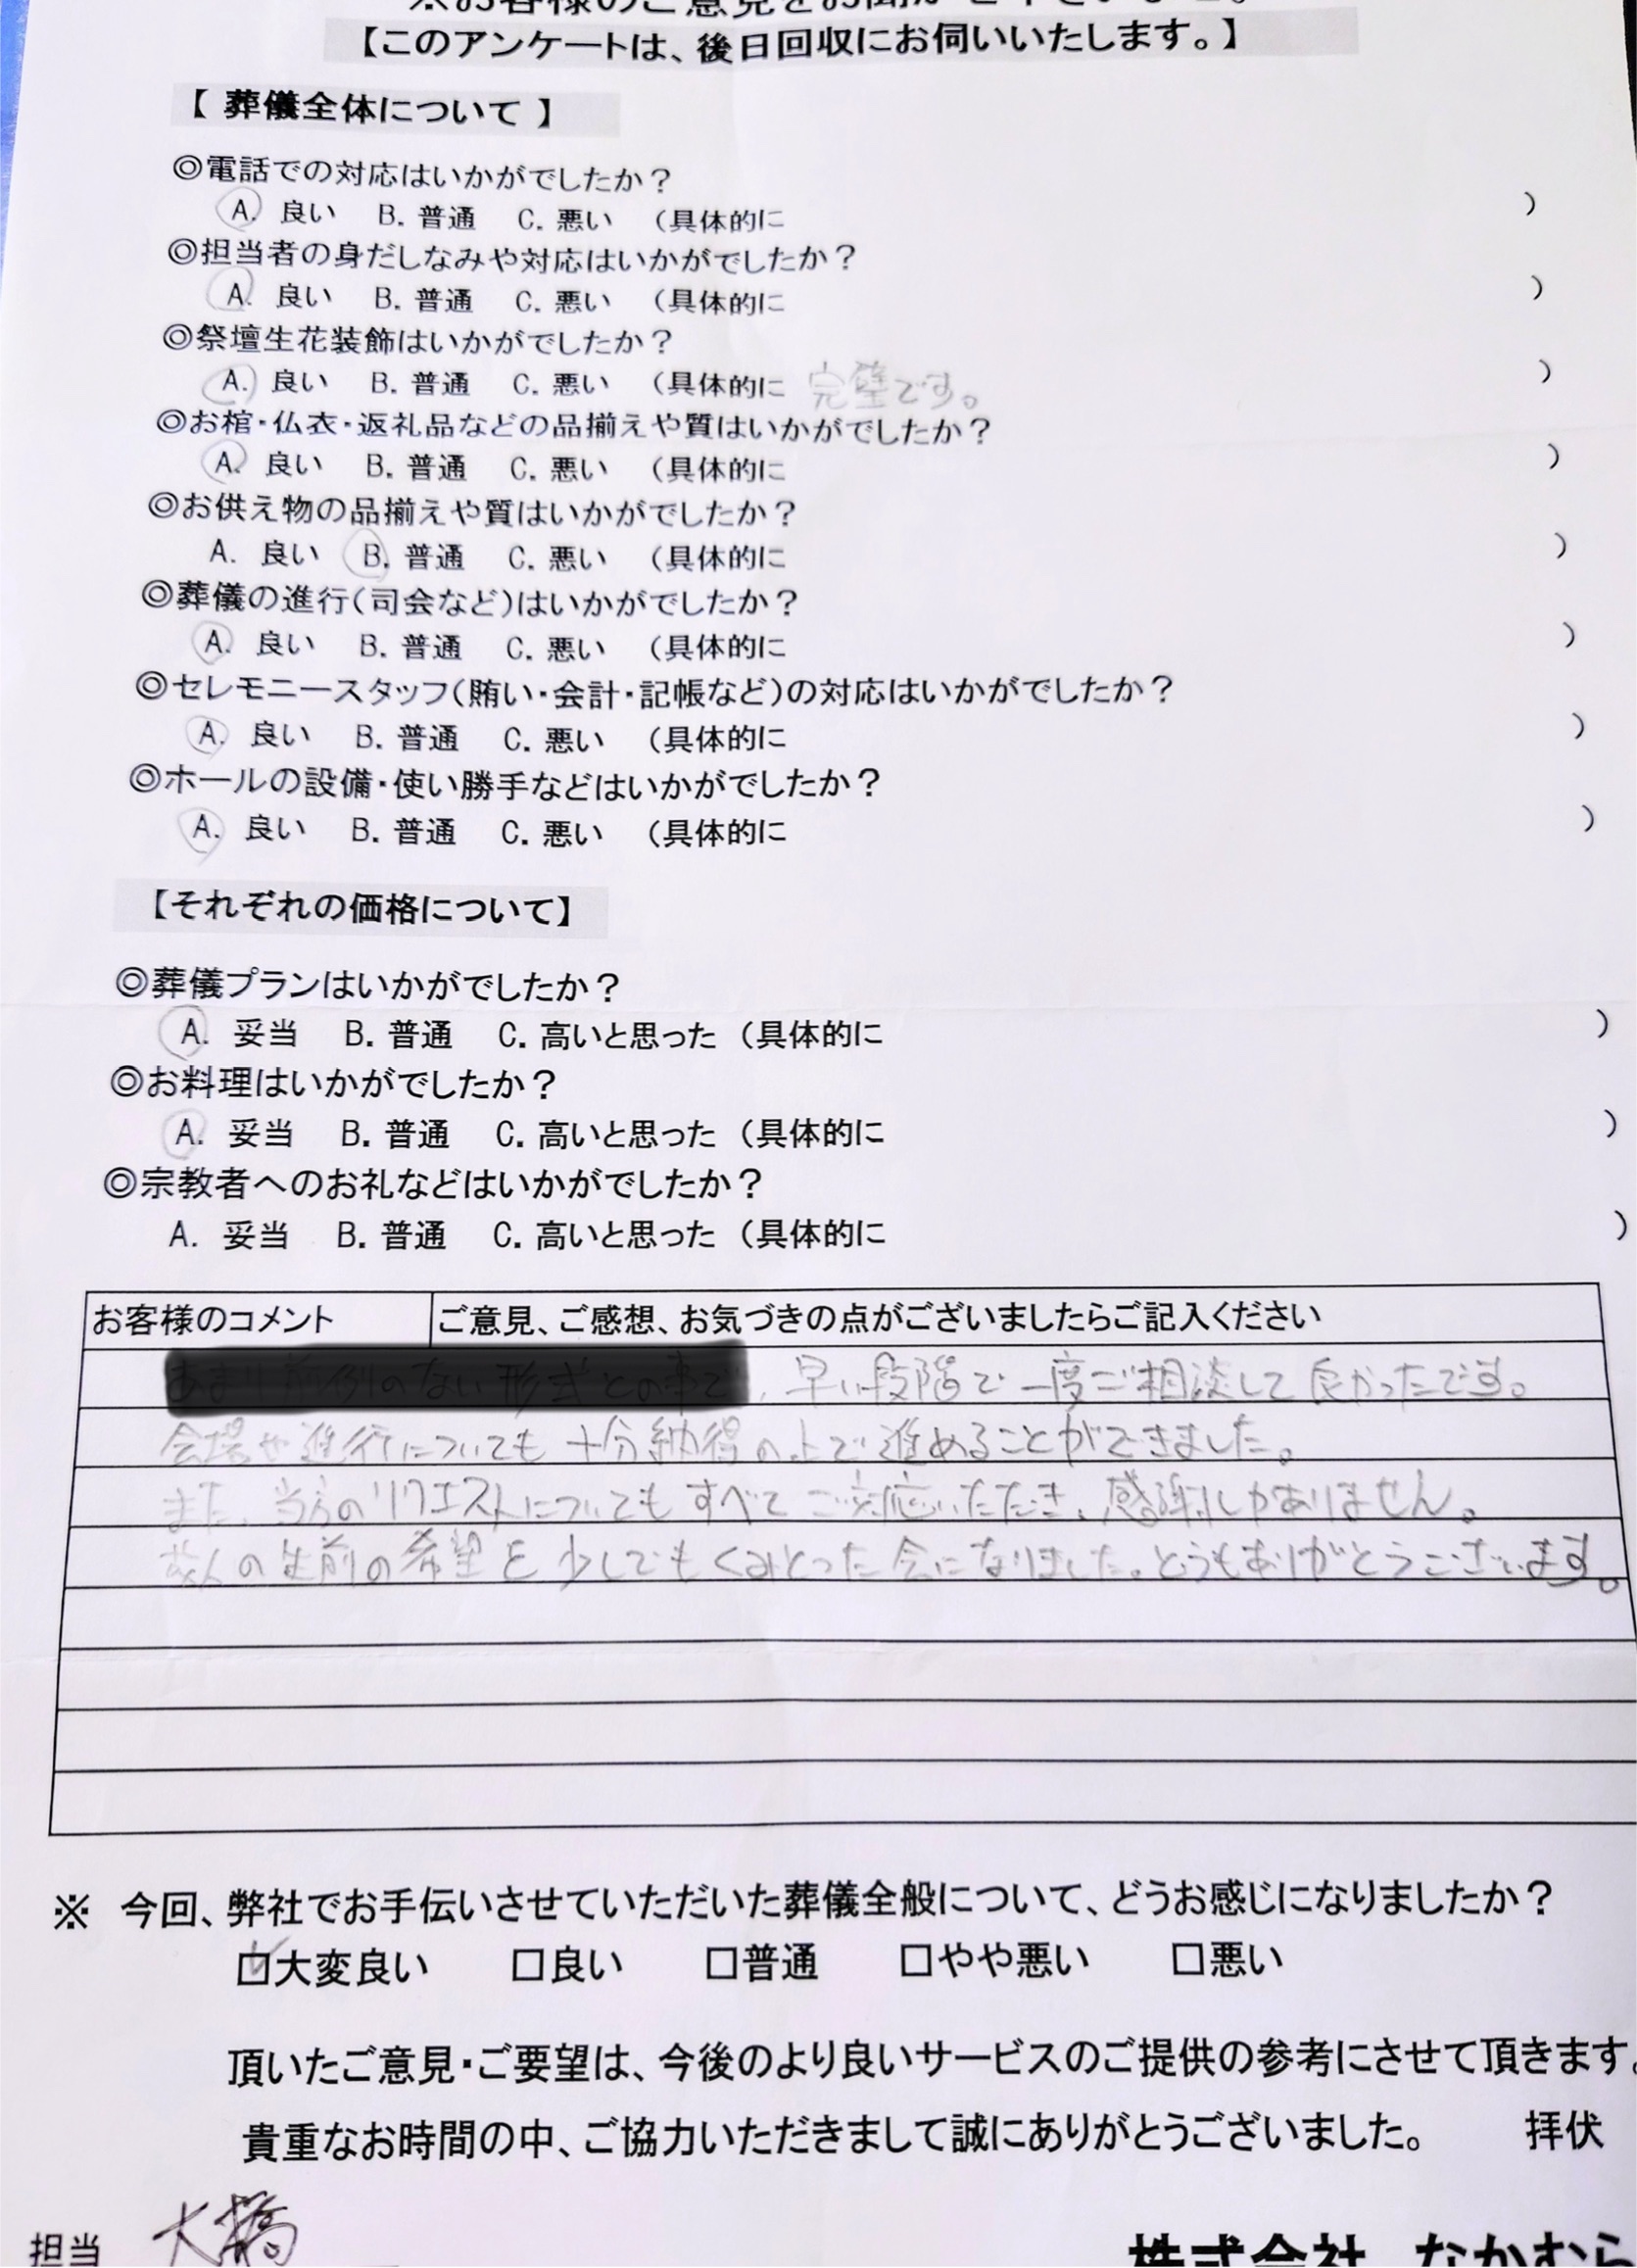 ※お客様のご意見をお聞かせ下さいませ。
【このアンケートは、後日回収にお伺いいたします。】
【 葬儀全体について 】
◎電話での対応はいかがでしたか？
A. 良い B. 普通 C. 悪い （具体的に ）
◎担当者の身だしなみや対応はいかがでしたか？
A. 良い B. 普通 C. 悪い （具体的に ）
◎祭壇生花装飾はいかがでしたか？
A. 良い B. 普通 C. 悪い （具体的に 完璧です。 ）
◎お棺・仏衣・返礼品などの品揃えや質はいかがでしたか？
A. 良い B. 普通 C. 悪い （具体的に ）
◎お供え物の品揃えや質はいかがでしたか？
A. 良い B. 普通 C. 悪い （具体的に ）
◎葬儀の進行（司会など）はいかがでしたか？
A. 良い B. 普通 C. 悪い （具体的に ）
◎セレモニースタッフ（賄い・会計・記帳など）の対応はいかがでしたか？
A. 良い B. 普通 C. 悪い （具体的に ）
◎ホールの設備・使い勝手などはいかがでしたか？
A. 良い B. 普通 C. 悪い （具体的に ）
【それぞれの価格について】
◎葬儀プランはいかがでしたか？
A. 妥当 B. 普通 C. 高いと思った （具体的に ）
◎お料理はいかがでしたか？
A. 妥当 B. 普通 C. 高いと思った （具体的に ）
◎宗教者へのお礼などはいかがでしたか？
A. 妥当 B. 普通 C. 高いと思った （具体的に ）
お客様のコメント ご意見、ご感想、お気づきの点がございましたらご記入ください
、早い段階で一度ご相談して良かったです。
会場や進行についても十分納得の上で進めることができました。
また、当方のリクエストについてもすべてご対応いただき、感謝しかありません。
故人の生前の希望を少しでもくみとった会になりました。どうもありがとうございます。
※ 今回、弊社でお手伝いさせていただいた葬儀全般について、どうお感じになりましたか？
☑大変良い □良い □普通 □やや悪い □悪い
頂いたご意見・ご要望は、今後のより良いサービスのご提供の参考にさせて頂きます。
貴重なお時間の中、ご協力いただきまして誠にありがとうございました。 拝伏
担当 大橋 株式会社 なかむら